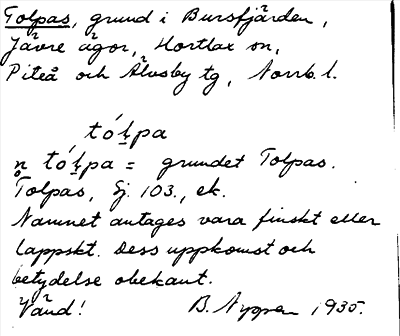 Tolpas, grund i Bursfjärden,
Jävre ägor, Hortlax sn,
Piteå och Älvsby tg, Norrb. l.
tóḷpa
n̥ tóḷpa = grundet Tolpas.
Tolpas, Sj. 103., ek.
Namnet antages vara finskt eller
lappskt. Dess uppkomst och
betydelse obekant.
Vänd! B. Nygren 1935.